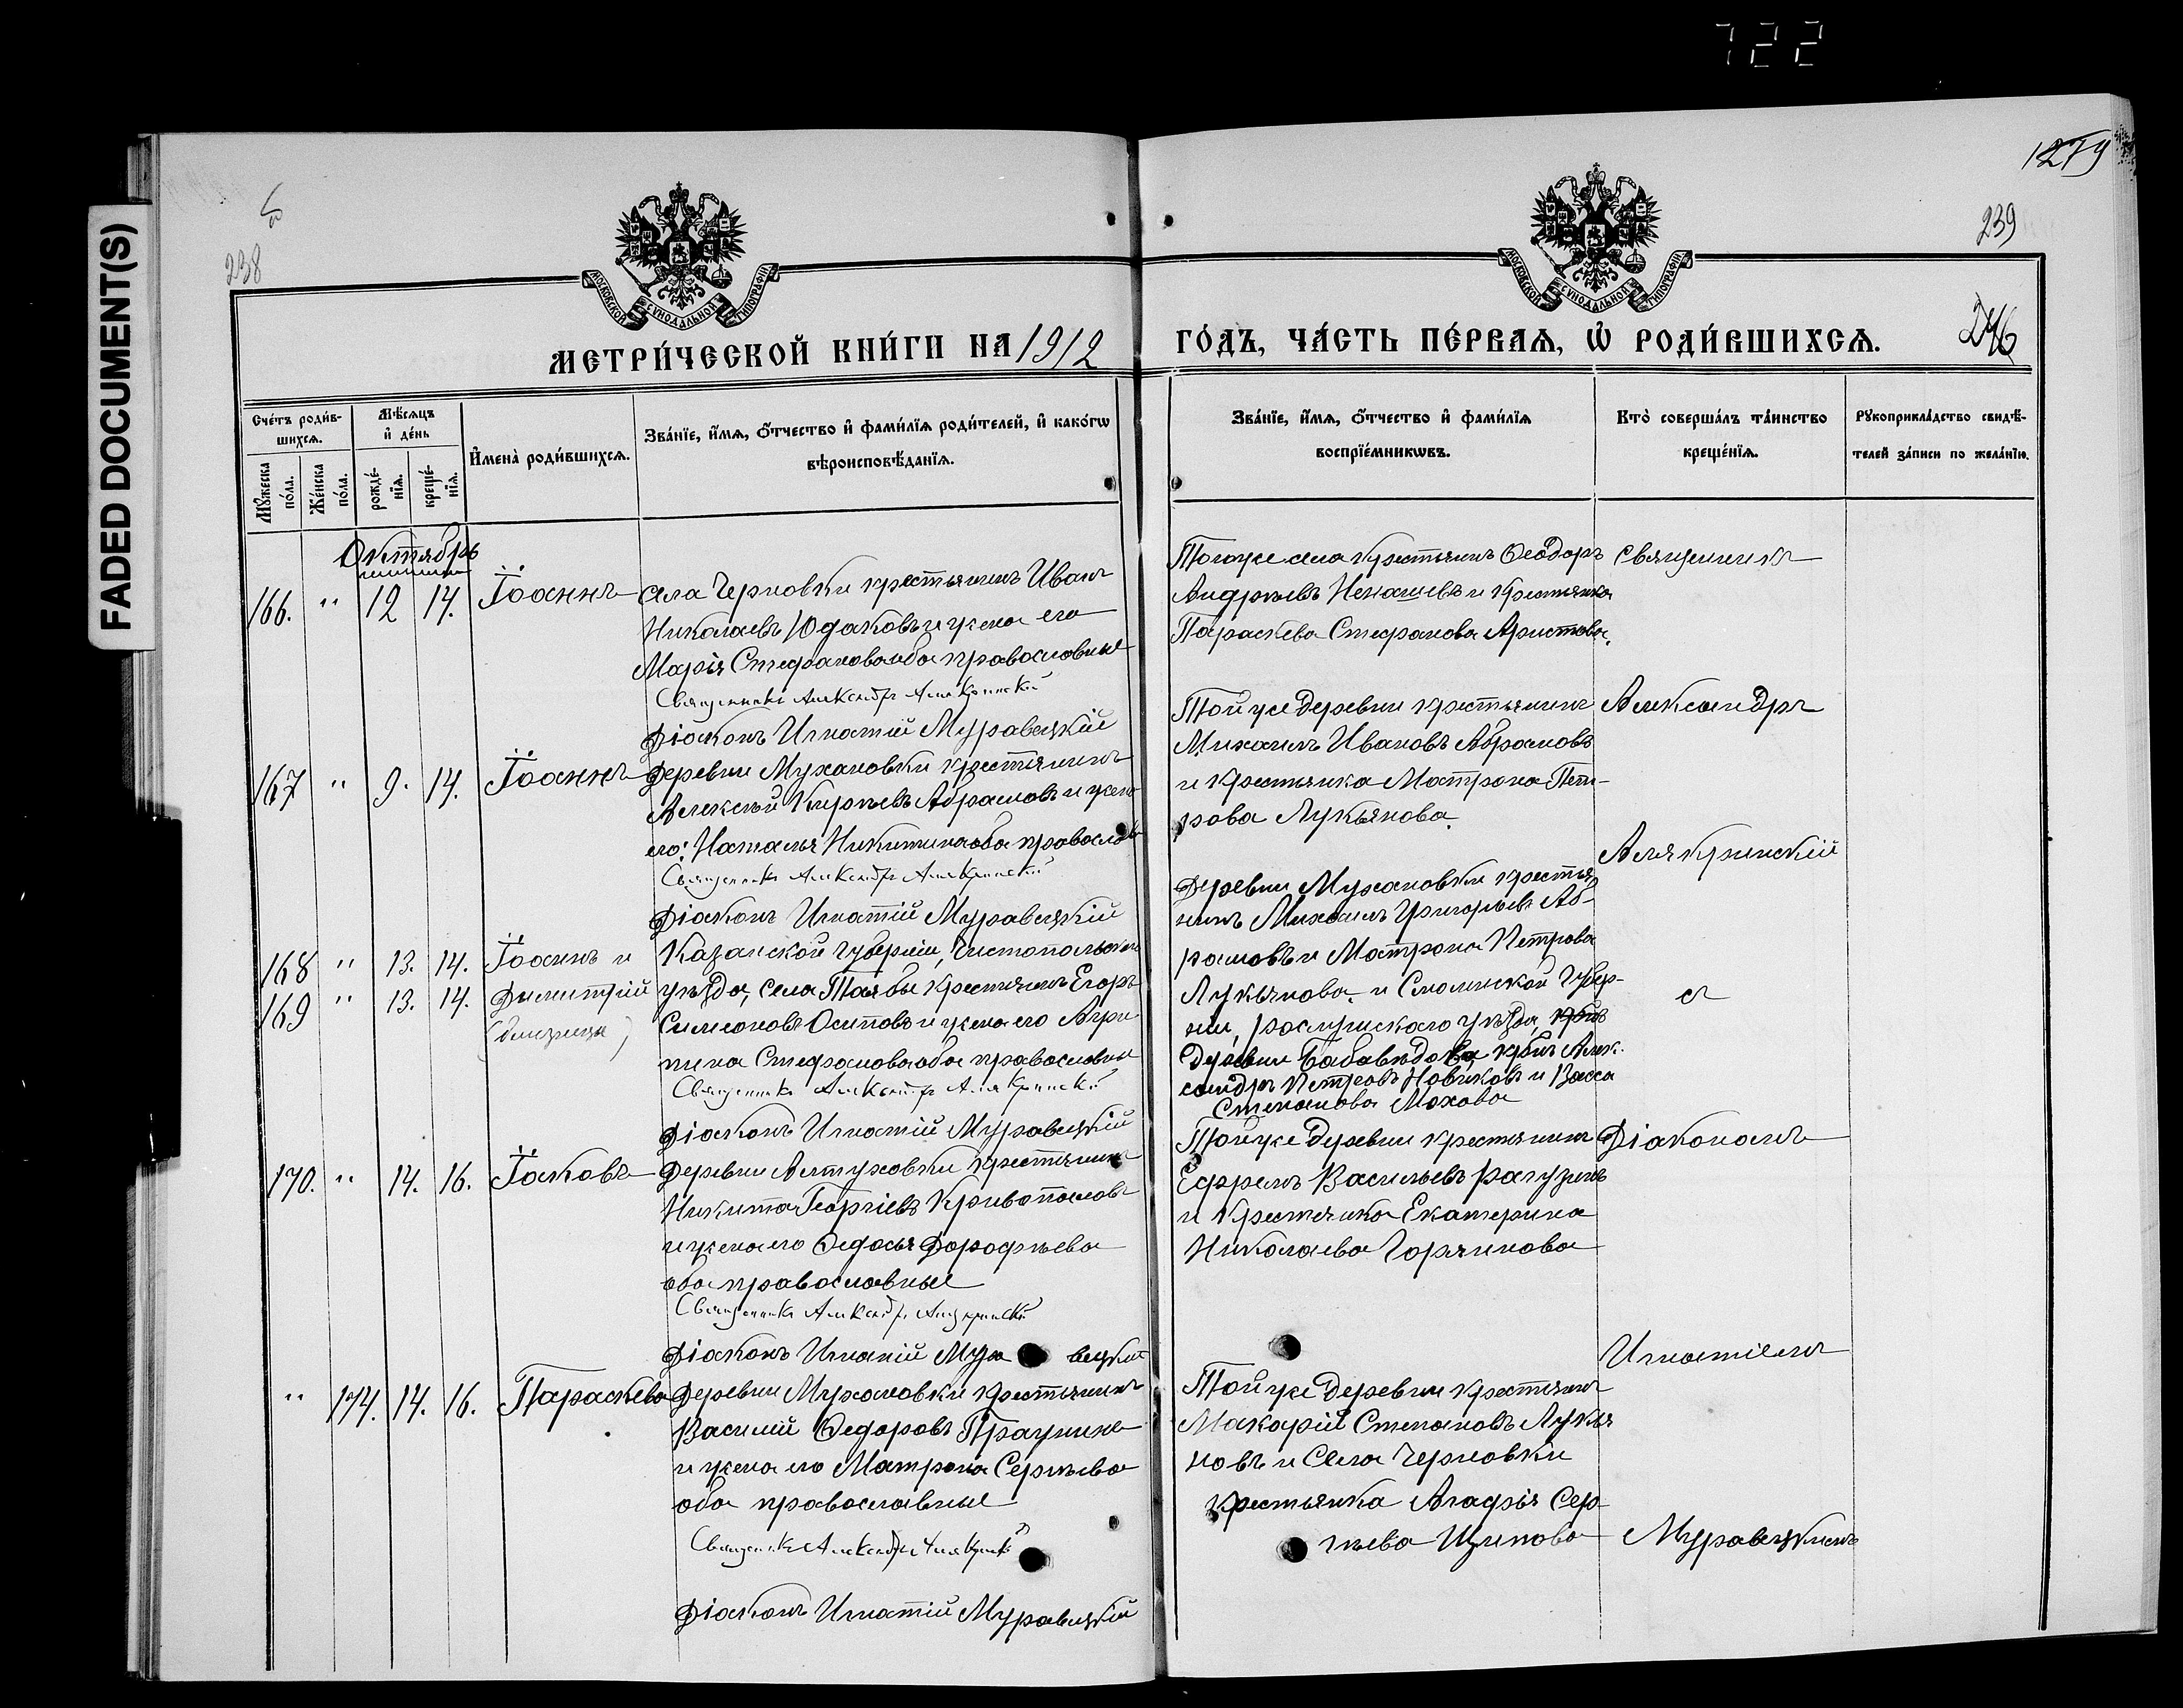 722
FADED DOCUMENT(S)
1279
238
239
МОСКОВСКОЙ СѴНОДАЛЬНОЙ ТИПОГРАФІИ
МОСКОВСКОЙ СѴНОДАЛЬНОЙ ТИПОГРАФІИ
МЕТРИ́ЧЕСКОЙ КНИ́ГИ НА 1912
ГО́ДЪ, ЧА́СТЬ ПЕ́РВАѦ, Ѡ҆ РОДИ́ВШИХСѦ.
246
Сче́тъ роди́в-
шихсѧ.
Мѣ́сѧцъ
и҆ де́нь
Мꙋ́жеска
по́ла.
Же́нска
по́ла.
рожде́-
нїѧ.
креще́-
нїѧ.
И҆мена̀ роди́вшихсѧ.
Зва́нїе, и҆́мѧ, ѻ҆́тчество и҆ фами́лїѧ роди́телей, и҆ како́гѡ
вѣроисповѣ́данїѧ.
Зва́нїе, и҆́мѧ, ѻ҆́тчество и҆ фами́лїѧ
воспрїе́мникѡвъ.
Кто̀ соверша́лъ та́инство
креще́нїѧ.
Рꙋкоприкла́дство свидѣ́-
телей за́писи по жела́нїю.
Октябрь
166. " 12 14. Іоаннъ
села Черновки крестьянинъ Иванъ
Николаевъ Юдаковъ и жена его
Марія Стефанова оба православные
Священникъ Александръ Алякринскій
Діаконъ Игнатій Муравецкій
Тогоже села крестьянинъ Ѳеодоръ
Андреевъ Ненашевъ и крестьянка
Параскева Стефанова Аристова.
Священникъ
167 " 9. 14. Іоаннъ
деревни Мухановки крестьянинъ
Алексѣй Кирѣевъ Абрамовъ и жена
его: Наталья Никитина оба православ
Священникъ Александръ Алякринскій
Діаконъ Игнатій Муравецкій
Той же деревни крестьянинъ
Михаилъ Ивановъ Абрамовъ
и крестьянка Матрона Пет-
рова Лукьянова.
Александръ
168 " 13. 14. Іоаннъ и
169 " 13. 14. Димитрій
(близнецы)
Казанской губерніи, Чистопольскаго
уѣзда, села Таябы крестьянинъ Егоръ
Симеоновъ Осиповъ и жена его Агри
пина Стефанова оба православные
Священникъ Александръ Алякринскій
Діаконъ Игнатій Муравецкій
деревни Мухановки крестья
нинъ Михаилъ Григорьевъ Аб-
рамовъ и Матрона Петрова
Лукьянова. и Смоленской Губер-
ніи, рослужскаго уѣзда,
деревни крнъ Алек-
сандръ Петровъ Новиковъ и Васса
Степанова Мохова
Алякринскій
съ
170. " 14. 16. Іаковъ
деревни Алтуховки крестьянинъ
Никита Георгіевъ Кривопаловъ
и жена его Ѳедосья Дорофѣева
оба православные
Священникъ Александръ Алякринскій
Діаконъ Игнатій Мура вецкій
Той же деревни крестьянинъ
Ефремъ Васильевъ Рагузинъ
и крестьянка Екатерина
Николаева Горяинова
Діакономъ
" 174. 14. 16. Параскева
деревни Мухановки крестьянинъ
Василій Ѳедоровъ
и жена его Матрона Сергѣева
оба православные
Священникъ Александръ Алякринскій
Діаконъ Игнатій Муравецкій
Той же деревни крестьянинъ
Макарій Степановъ Лукья
новъ и села Черновки
крестьянка Агафія Сер-
гѣева Щипова
Игнатіемъ
Муравецкимъ